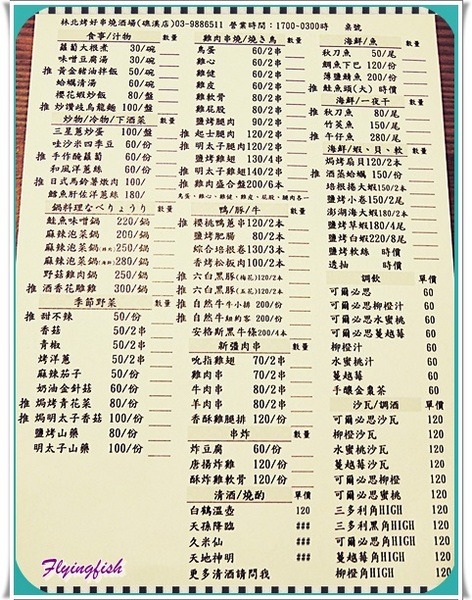 林北烤好串燒酒場(礁溪店)03-9886511 營業時間：1700-0300時 桌號
食事/汁物 數量
蘿蔔大根煮 30/碗
味噌豆腐湯 30/碗
推 黃金豬油拌飯 50/碗
蛤蠣清湯 60/碗
櫻花蝦炒飯 80/盤
推 炒讚岐烏龍麵 100/盤
炒物/冷物/下酒菜 數量
三星蔥炒蛋 100/盤
哇沙米四季豆 60/份
推 手作醃蘿蔔 60/份
和風洋蔥絲 60/份
推 日式馬鈴薯燉肉 100/
鱈魚肝佐洋蔥絲 180/
鍋料理なべりょうり 數量
鮭魚味噌鍋 220/鍋
麻辣泡菜鍋 200/鍋
麻辣泡菜鍋 250/鍋
麻辣泡菜鍋 280/鍋
野菇雞肉鍋 250/鍋
推 酒香花雕雞 300/鍋
季節野菜 數量
推 甜不辣 50/份
香菇 50/2串
青椒 50/2串
烤洋蔥 50/2串
麻辣茄子 50/份
奶油金針菇 60/份
推 焗烤青花菜 80/份
推 焗明太子香菇 100/份
鹽烤山藥 80/份
明太子山藥 100/份
雞肉串燒/燒き鳥 數量
鳥蛋 60/2串
雞心 60/2串
雞健 60/2串
雞皮 60/2串
雞軟骨 80/2串
雞屁股 80/2串
鹽烤腿肉 90/2串
推 起士腿肉 120/2串
推 明太子腿肉 120/2串
鹽烤雞翅 130/4串
推 明太子雞翅 140/2串
推 雞肉盛合盤 200/6本
鳥蛋、雞心、雞健、雞皮、屁股、腿肉各一
鴨/豚/牛 數量
推 櫻桃鴨蔥串 120/2本
鹽烤肥腸 80/2本
綜合培根卷 130/3本
香烤松板肉 100/2本
推 六白黑豚(梅花)120/2本
推 六白黑豚(五花)120/2本
推 自然牛牛小排 200/份
推 自然牛紐約客 200/份
安格斯黑牛條200/4本
新疆肉串 數量
吮指雞翅 70/2串
雞肉串 70/2串
牛肉串 80/2串
羊肉串 80/2串
香酥雞腿排 120/2串
串炸 數量
炸豆腐 60/份
唐揚炸雞 120/份
酥炸雞軟骨 120/份
清酒/燒酌 單價
白鶴溫壺 120
天孫降臨 ###
久米仙 ###
天地神明 ###
更多清酒請問我
海鮮/魚 數量
秋刀魚 50/尾
鯛魚下巴 120/份
薄鹽鯖魚 200/份
推 鮭魚頭(大) 時價
海鮮/一夜干 數量
推 秋刀魚 80/尾
竹莢魚 150/尾
推 午仔魚 280/尾
海鮮/蝦、貝、軟 數量
焗烤扇貝120/2本
推 酒蒸蛤蠣 150/份
培根捲大蝦150/2本
鹽烤小卷150/2尾
澎湖海大蝦180/2本
鹽烤草蝦180/4本
鹽烤白蝦220/8本
鹽烤軟絲 時價
透抽 時價
調飲 單價
可爾必思 60
可爾必思柳橙汁 60
可爾必思水蜜桃 60
可爾必思蔓越莓 60
柳橙汁 60
水蜜桃汁 60
蔓越莓 60
手釀金棗茶 60
沙瓦/調酒 單價
可爾必思沙瓦 120
柳橙沙瓦 120
水蜜桃沙瓦 120
蔓越莓沙瓦 120
可爾必思柳橙 120
可爾必思蜜桃 120
三多利角HIGH 120
三多利黑角HIGH 120
可爾必思角HIGH 120
蔓越莓角HIGH 120
柳橙角HIGH 120
Flyingfish